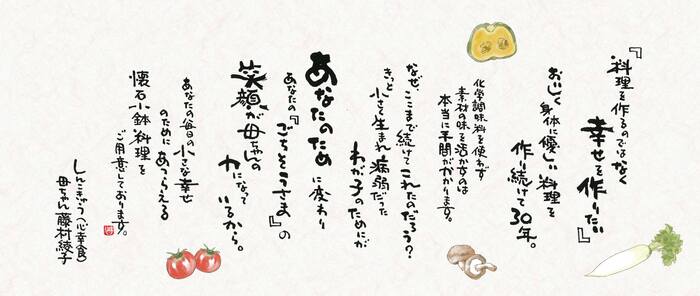 『料理を作るのではなく
幸せを作りたい』
おいしく
身体に優しい料理を
作り続けて30年。
化学調味料を使わず
素材の味を活かすのは
本当に手間がかかります。
なぜ、ここまで続けてこれたのだろう?
きっと
小さく生まれ病弱だった
わが子のためにが
あなたのために変わり
あなたの『ごちそうさま』の
笑顔が母ちゃんの
力になって
いるから。
あなたの毎日の小さな幸せ
のためにあつらえる
懐石小鉢料理を
ご用意しております。
しんこきゅう(心幸食)
母ちゃん 藤村綾子